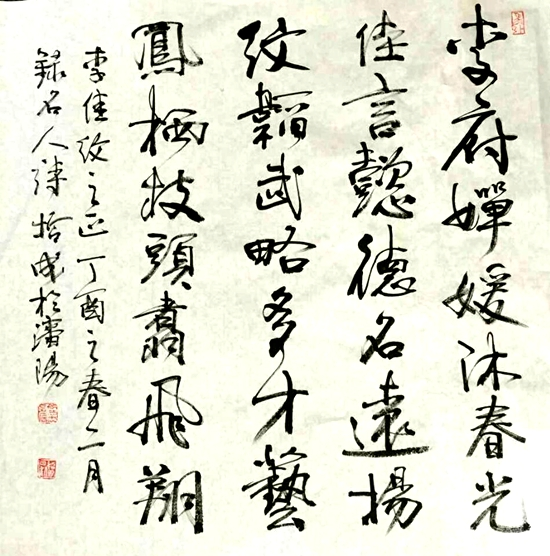 李府嬋媛沐春光
佳言懿德名遠揚
纹韜武略多才藝
鳳栖枝頭翥飛翔
李佳纹之正丁酉之春二月
錄名人詩恰成於瀋陽